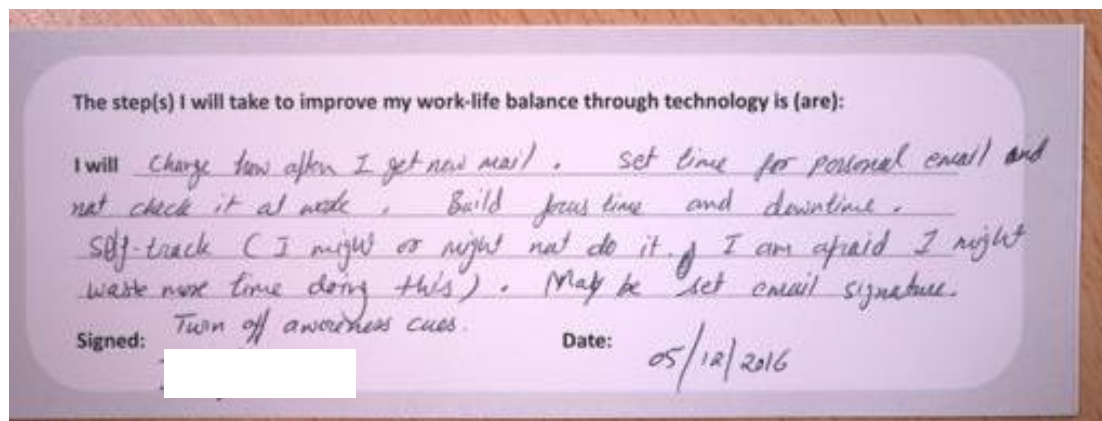 The step(s) I will take to improve my work-life balance through technology is (are):
I will Change how often I get new mail. Set time for personal email and
not check it at work. Build focus time and downtime.
Self-track (I might or might not do it. I am afraid I might
waste more time doing this). May be set email signature.
Turn off awareness cues.
Signed:
Date: 05/12/2016